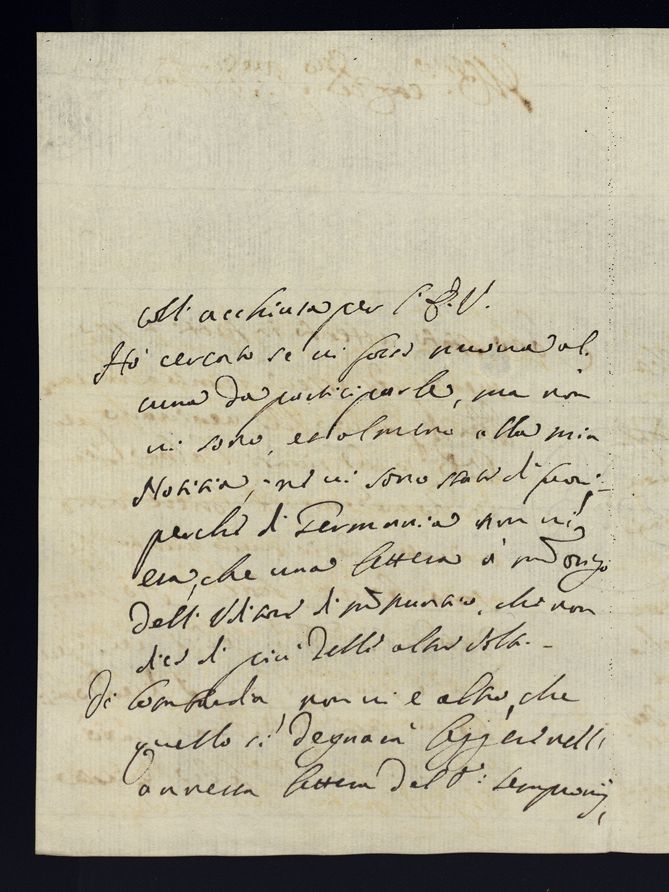 coll'acchiusa per l'E.V.
Hò cercato se vi fosse nuova al
cuna da participarle, ma non
vi sono, e almeno alla mia
Notitia, nè vi sono state di fuori
perche di Germania non vi
era, che una lettera à
dell' Uditore di che non
dice di più dell' altre volte.
Di Lombardia non vi e altro, che
quello si degnarà leggere nell'
annessa lettera del P: Sempronij